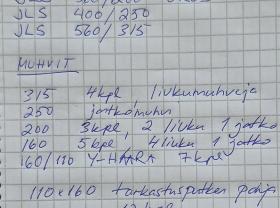 JLS 400/250
JLS 560/315
MUHVIT
315 4kpl, liukumuhveja
250 jatkomuhvi
200 3kpl, 2 liuku 1 jatko
160 5kpl, 4 liuku 1 jatko
160/110 Y-HAARA 7kpl
110x160 tarkastusputken pohja